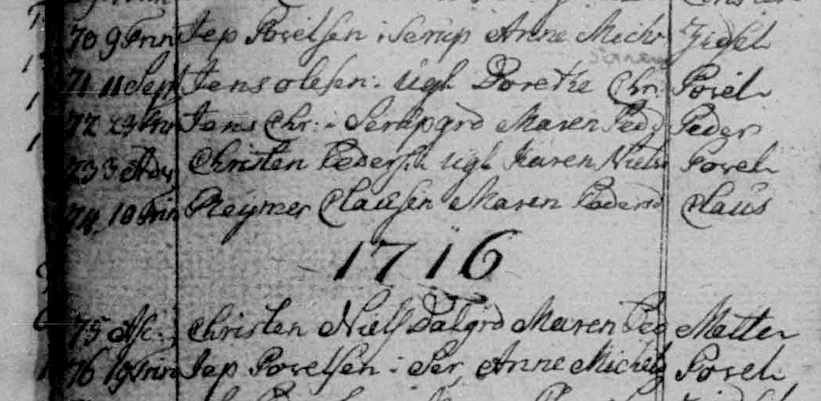 70 9 Trin Jep Povelsen i Serup Anne Mich Zidsel
71 11 Sept Jens olesen: Ugl. Dorethe Chr: Povel
72 23 Trin Jens Chr: i Serupgrd Maren Ped Peder
73 3 Adv Christen Peders: i ugl Karen Niels Povel
74 10 Trin Reymer Clausen Maren Peders Claus
1716
75 Christen Niels Dalgrd Maren Ped Mette
76 19 Trin Jep Povelsen i Ser Anne Michels Povel